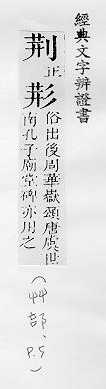 經典文字辨證書
荆正
俗出後周華嶽頌唐虞世
南孔子廟堂碑亦用之
(艸部、P.5)